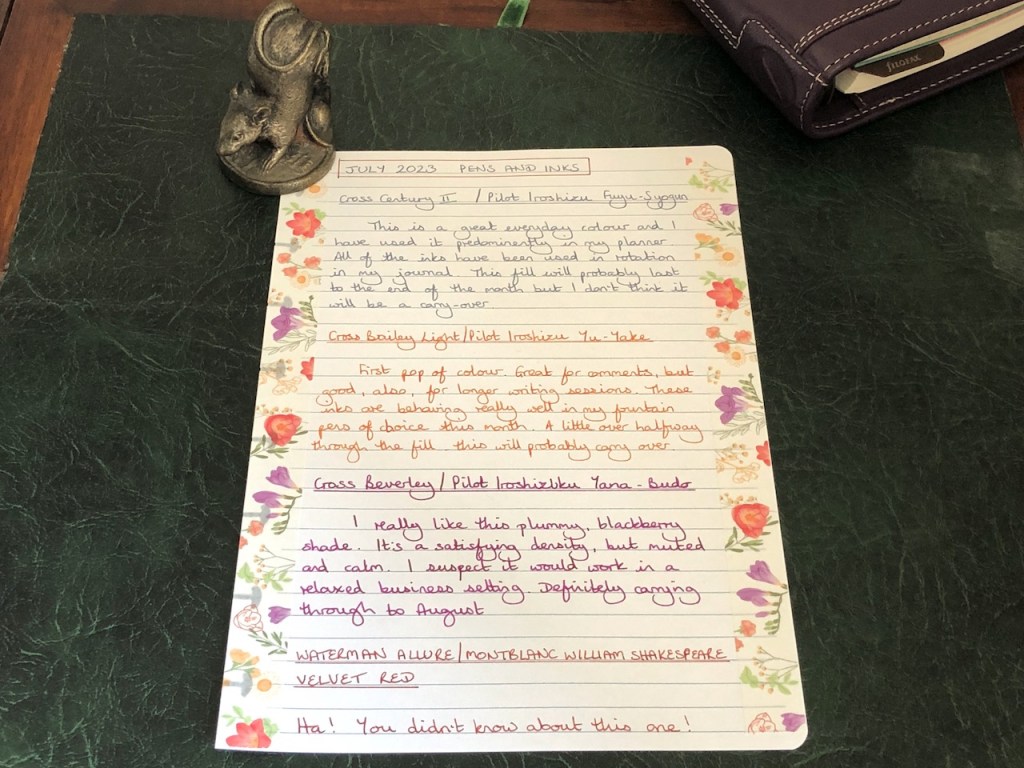 FILOFAX
JULY 2023 PENS AND INKS
Cross Century II / Pilot Iroshizu Fuyu-Syogun
This is a great everyday colour and I
have used it predominently in my planner
All of the inks have been used in rotation
in my journal. This fill will probably last
to the end of the month but I don't think it
will be a carry-over.
Cross Bailey Light/Pilot Iroshizu Yu-Yake
First pop of colour. Great for comments, but
good, also, for longer writing sessions. These
inks are behaving really well in my fountain
pens of choice this month. A little over halfway
through the fill. this will probably carry over.
Cross Beverley / Pilot Yana-Budo
I really like this plummy, blackberry
shade. It's a satisfying density, but muted
and calm. I suspect it would work in a
relaxed business setting. Definitely carrying
through to August
WATERMAN ALLURE/MONTBLANC WILLIAM SHAKESPEARE
VELVET RED
Ha! You didn't know about this one!